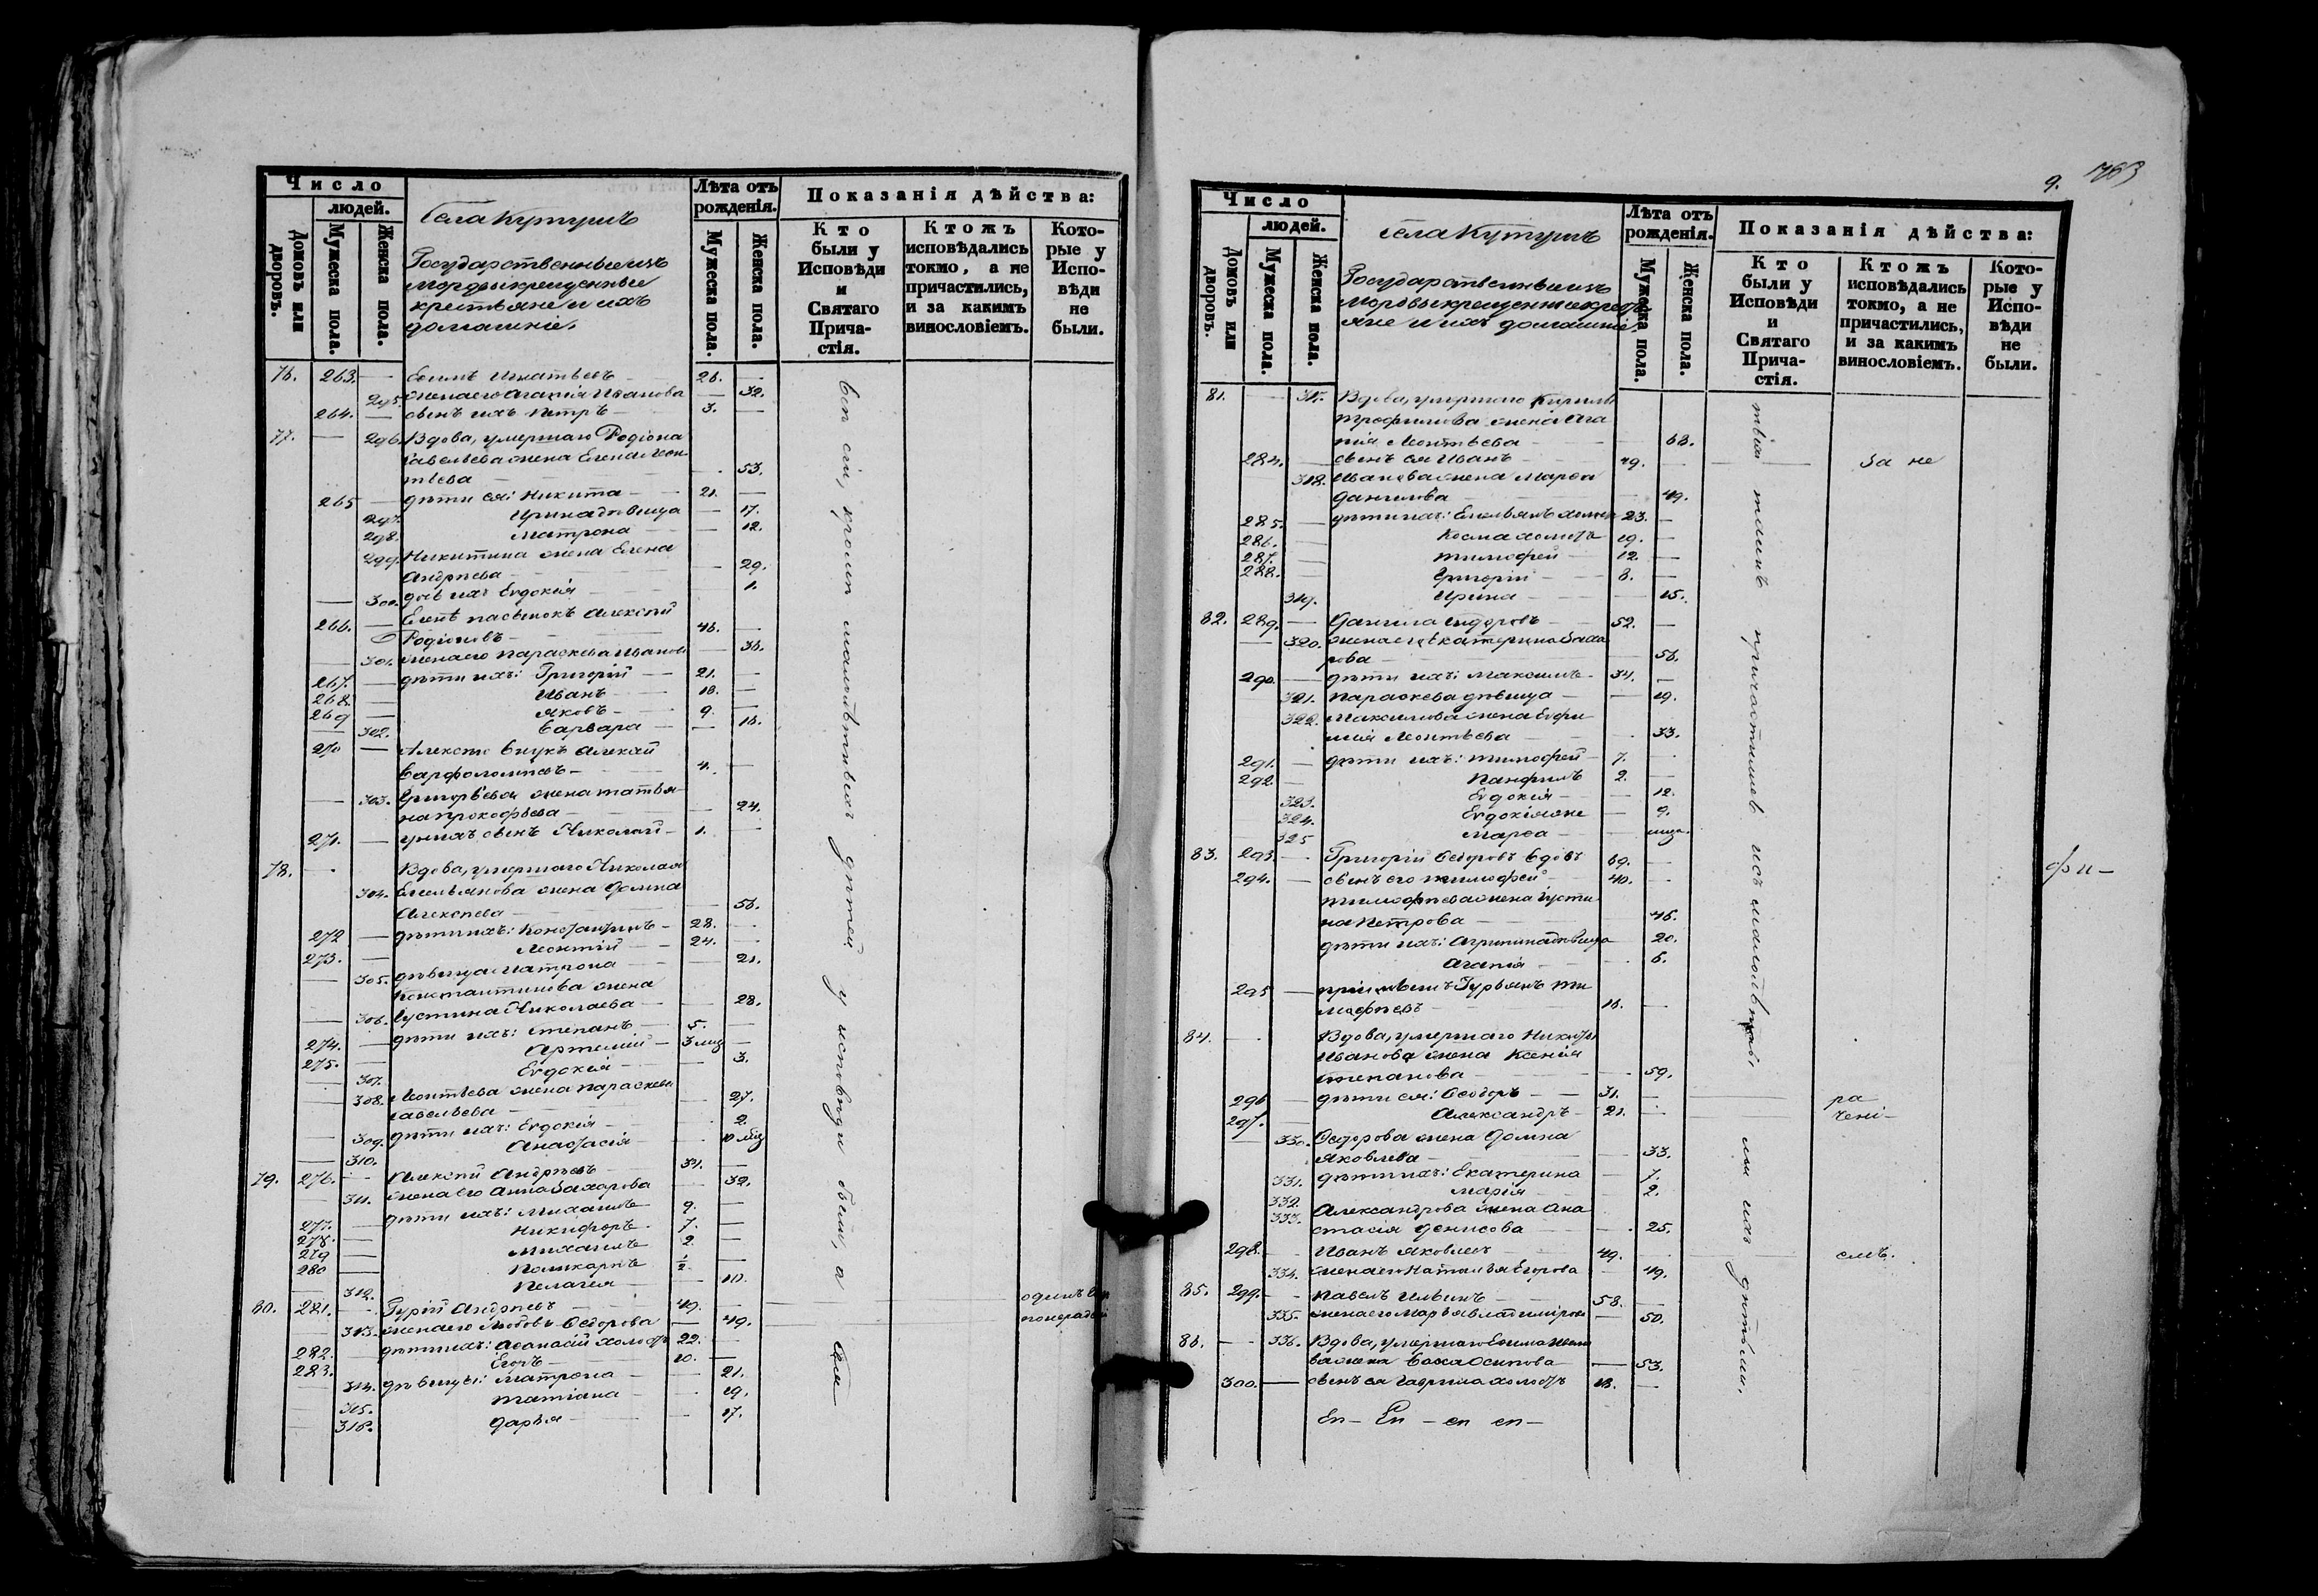 Число
людей.
Домовъ или дворовъ.
Мужеска пола.
Женска пола.
Села Кутушъ
Государственные изъ
мордвы крещенные
крестьяне и ихъ
домашніе.
Лѣта отъ рожденія.
Мужеска пола.
Женска пола.
Показанія дѣйства:
Кто были у Исповѣди и Святаго Причастія.
Ктожъ исповѣдались токмо, а не причастились, и за какимъ винословіемъ.
Которые у Исповѣди не были.
76. 263. — Ефимъ Игнатьевъ 26. —
295 жена его Агапія Иванова — 32.
264. — сынъ ихъ Петръ 3. —
77. — 296. Вдова, умершаго Родіона
Савельева жена Елена Леон
тьева — 53.
265 — дѣти ея: Никита — 21. —
297. Ирина дѣвица — 17.
298. Матрона — 12.
299. Никитина жена Елена
Андреева — 29.
— 300. дочь ихъ Евдокія — 1.
266. — Елены пасынокъ Алексѣй
Родіоновъ — 46. —
— 301. жена его Параскева Иванова — 36.
267. — дѣти ихъ: Григорій — 21. —
268. — Иванъ — 18. —
269 — Яковъ — 9. —
— 302. Варвара — — 16.
270 — Алексѣя внукъ Алексѣй
Варфоломеевъ — 4. —
— 303. Григорьева жена Татья
на Прокофьева — — 24.
271. — у нихъ сынъ Николай — 1. —
78. — Вдова, умершаго Николая
304. Емельянова жена Домна
Алексеева — — 56.
272 — дѣти ихъ: Константинъ — 28. —
273. — Леонтій — 24. —
— 305. дѣвица Матрона — — 21.
Константинова жена
— 306. Іустина Николаева — — 28.
274. — дѣти ихъ: Степанъ — 5. —
275. — Артемій — 3 мѣс —
— 307. Евдокія — — 3.
— 308. Леонтьева жена Параскева
Савельева — — 27.
— 309. дѣти ихъ: Евдокія — 2.
— 310. Анастасія — 10 мѣс
79. 276. — Алексѣй Андреевъ 34. —
— 311. жена его Анна Захарова — 32.
277. — дѣти ихъ: Михаилъ 9. —
278. — Никифоръ 7. —
279 — Михаилъ 2. —
280 — Поликарпъ ½ —
— 312. Пелагея — 10.
80. 281. — Гурій Андреевъ 49. —
313. жена его Любовь Ѳедорова — 49.
282. дѣти ихъ: Аѳанасій холостъ 22. —
283. Егоръ — 10. —
314. дѣвицы: Матрона — 21.
315. Татіана — 19.
— 316. Дарья — 17.
Всѣ сіи, кромѣ малолѣтныхъ дѣтей у исповѣди были, а
9.
Число
людей.
Домовъ или дворовъ.
Мужеска пола.
Женска пола.
Села Кутушъ
Государственные изъ
мордвы крещенные кресть
яне и ихъ домашніе
Лѣта отъ рожденія.
Мужеска пола.
Женска пола.
Показанія дѣйства:
Кто были у Исповѣди и Святаго Причастія.
Ктожъ исповѣдались токмо, а не причастились, и за какимъ винословіемъ.
Которые у Исповѣди не были.
81. — 317. Вдова, умершаго Кирилы
Трофимова жена Ага
пія Леонтьева — — 68.
284. — сынъ ея Иванъ — 49. — За не
318. Иванова жена Марѳа
Данилова — 49.
285. — дѣти ихъ: Емельянъ холост 23. —
286. — Косма холостъ 19. —
287. — Тимофей — 12. —
288. — Григорій — 8. —
319. Ирина — 15.
82. 289. — Данила Сидоровъ — 52. —
— 320. жена его Екатерина Заха
рова — 56.
290. — дѣти ихъ: Максимъ 34. —
321. Параскева дѣвица — 19.
322. Максимова жена Евфи
мія Леонтьева — 33.
291. — дѣти ихъ: Тимофей 7.
292. — Панфилъ 2. —
323. Евдокія — 12.
324. Евдокія же — 9.
325 Марѳа —
83. 293. — Григорій Ѳедоровъ вдовъ 69. —
294. — сынъ его Тимофей 40. —
Тимофеева жена Іусти
на Петрова — 46.
дѣти ихъ: Агрипина дѣвица 20.
Агапія — 6.
295 — пріимышъ Гурьянъ Ти
мофеевъ — 16. —
84. — Вдова, умершаго Никиты
Иванова жена Ксенія
Степанова — 59.
296 — дѣти ея: Ѳеодоръ — 31. — ра
297. Александръ — 21. — чені—
— 330. Ѳедорова жена Домна
Яковлева — — 33.
331. дѣти ихъ: Екатерина — 7.
332. Марія — 2.
333. Александрова жена Ана
стасія Денисова — 25.
298. Иванъ Яковлевъ 49. — емъ.
334. жена его Наталья Егорова — 49.
85. 299. — Павелъ Ильинъ 58. —
335. жена его Марья Владимірова — 50.
86. — 336. Вдова, умершаго Ефима Ивано
ва жена Васса Осипова — 53.
300. — сынъ ея Гаврила холостъ 18. —
причастились
малолѣтныхъ
дѣтьми.